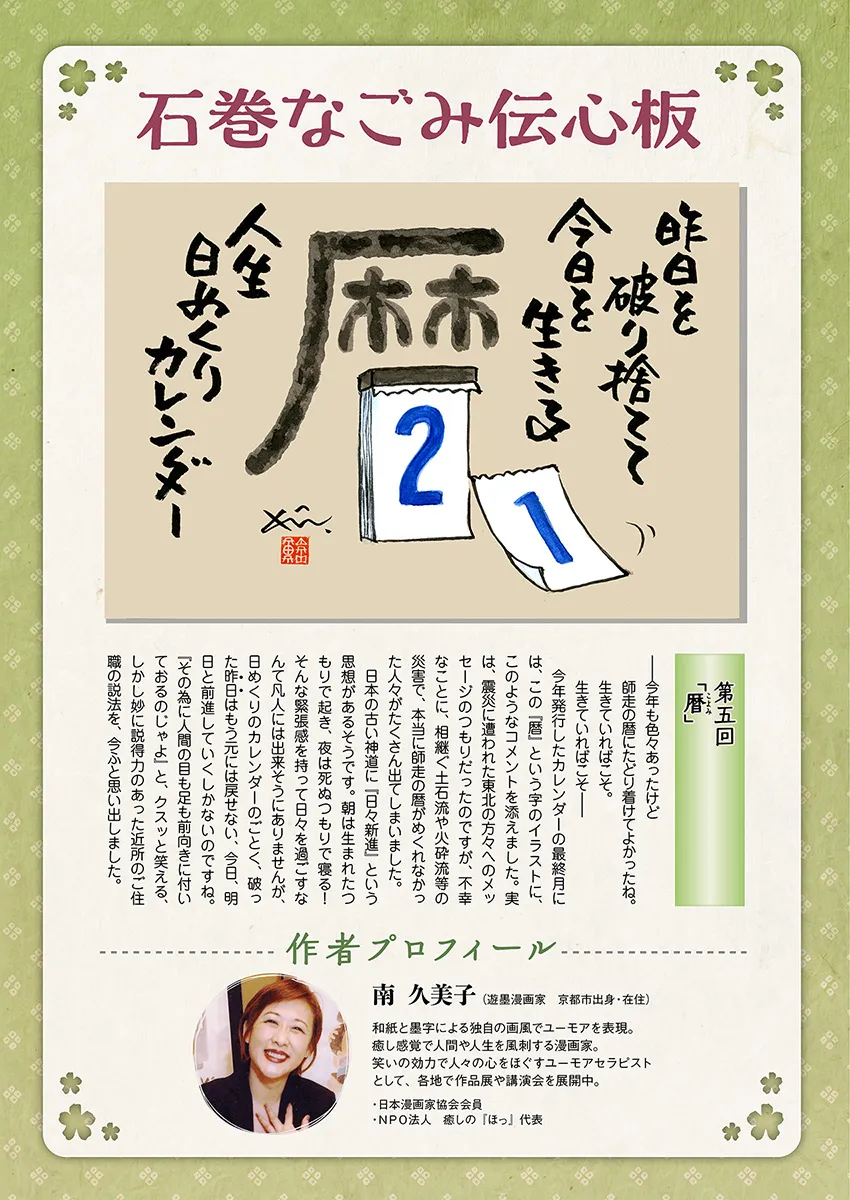 石巻なごみ伝心板
昨日を
破り捨てて
今日を
生きる
暦
人生
日めくり
カレンダー
2
1
第五回
「暦」
こよみ
――今年も色々あったけど
師走の暦にたどり着けてよかったね。
生きていればこそ。
生きていればこそ――
今年発行したカレンダーの最終月に
は、この『暦』という字のイラストに、
このようなコメントを添えました。実
は、震災に遭われた東北の方々へのメッ
セージのつもりだったのですが、不幸
なことに、相継ぐ土石流や火砕流等の
災害で、本当に師走の暦がめくれなかっ
た人々がたくさん出てしまいました。
日本の古い神道に『日々新進』という
思想があるそうです。朝は生まれたつ
もりで起き、夜は死ぬつもりで寝る!
そんな緊張感を持って日々を過ごすな
んて凡人には出来そうにありませんが、
日めくりのカレンダーのごとく、破っ
た昨日はもう元には戻せない、今日、明
日と前進していくしかないのですね。
『その為に人間の目も足も前向きに付い
ておるのじゃよ』と、クスッと笑える、
しかし妙に説得力のあった近所のご住
職の説法を、今ふと思い出しました。
作者プロフィール
南 久美子(遊墨漫画家 京都市出身・在住)
和紙と墨字による独自の画風でユーモアを表現。
癒し感覚で人間や人生を風刺する漫画家。
笑いの効力で人々の心をほぐすユーモアセラピスト
として、各地で作品展や講演会を展開中。
・日本漫画家協会会員
・NPO法人 癒しの『ほっ』代表